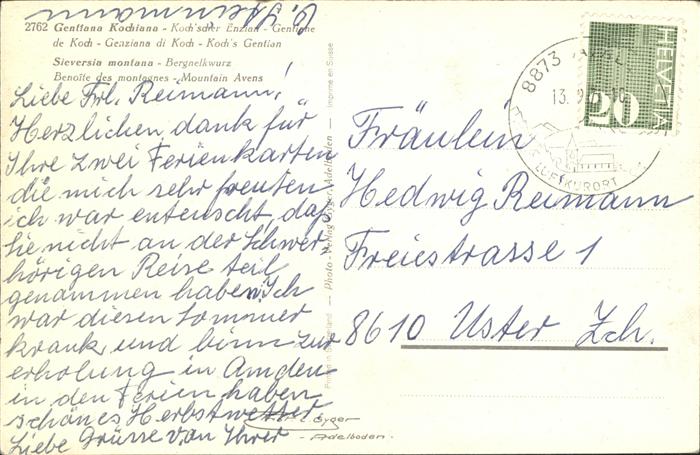 2762 Gentiana Kochiana - Koch'scher Enzian - Gentiane
de Koch - Genziana di Koch - Koch's Gentian
Sieversia montana - Bergnelkwurz
Benoîte des montagnes - Mountain Avens
Liebe Frl. Reimann!
Herzlichen dank für
Ihre zwei Ferienkarten
die mich sehr freuten
ich war entenscht, daß
Sie nicht an der Schwer-
hörigen Reise teil
genammen haben. Ich
war diesen Sommer
krank und binn zur
erholung in Amden
in den Ferien haben
schönes Herbstwetter
Liebe Grüsse van Ihrer
Photo-Verlag Gyger, Adelboden — Imprimé en Suisse
Printed in Switzerland
Gyger
- Adelboden -
Fräulein
Hedwig Reimann
Freiestrasse 1
8610 Uster Zch.
HELVETIA
20
8873
13. 9.
LUFTKURORT